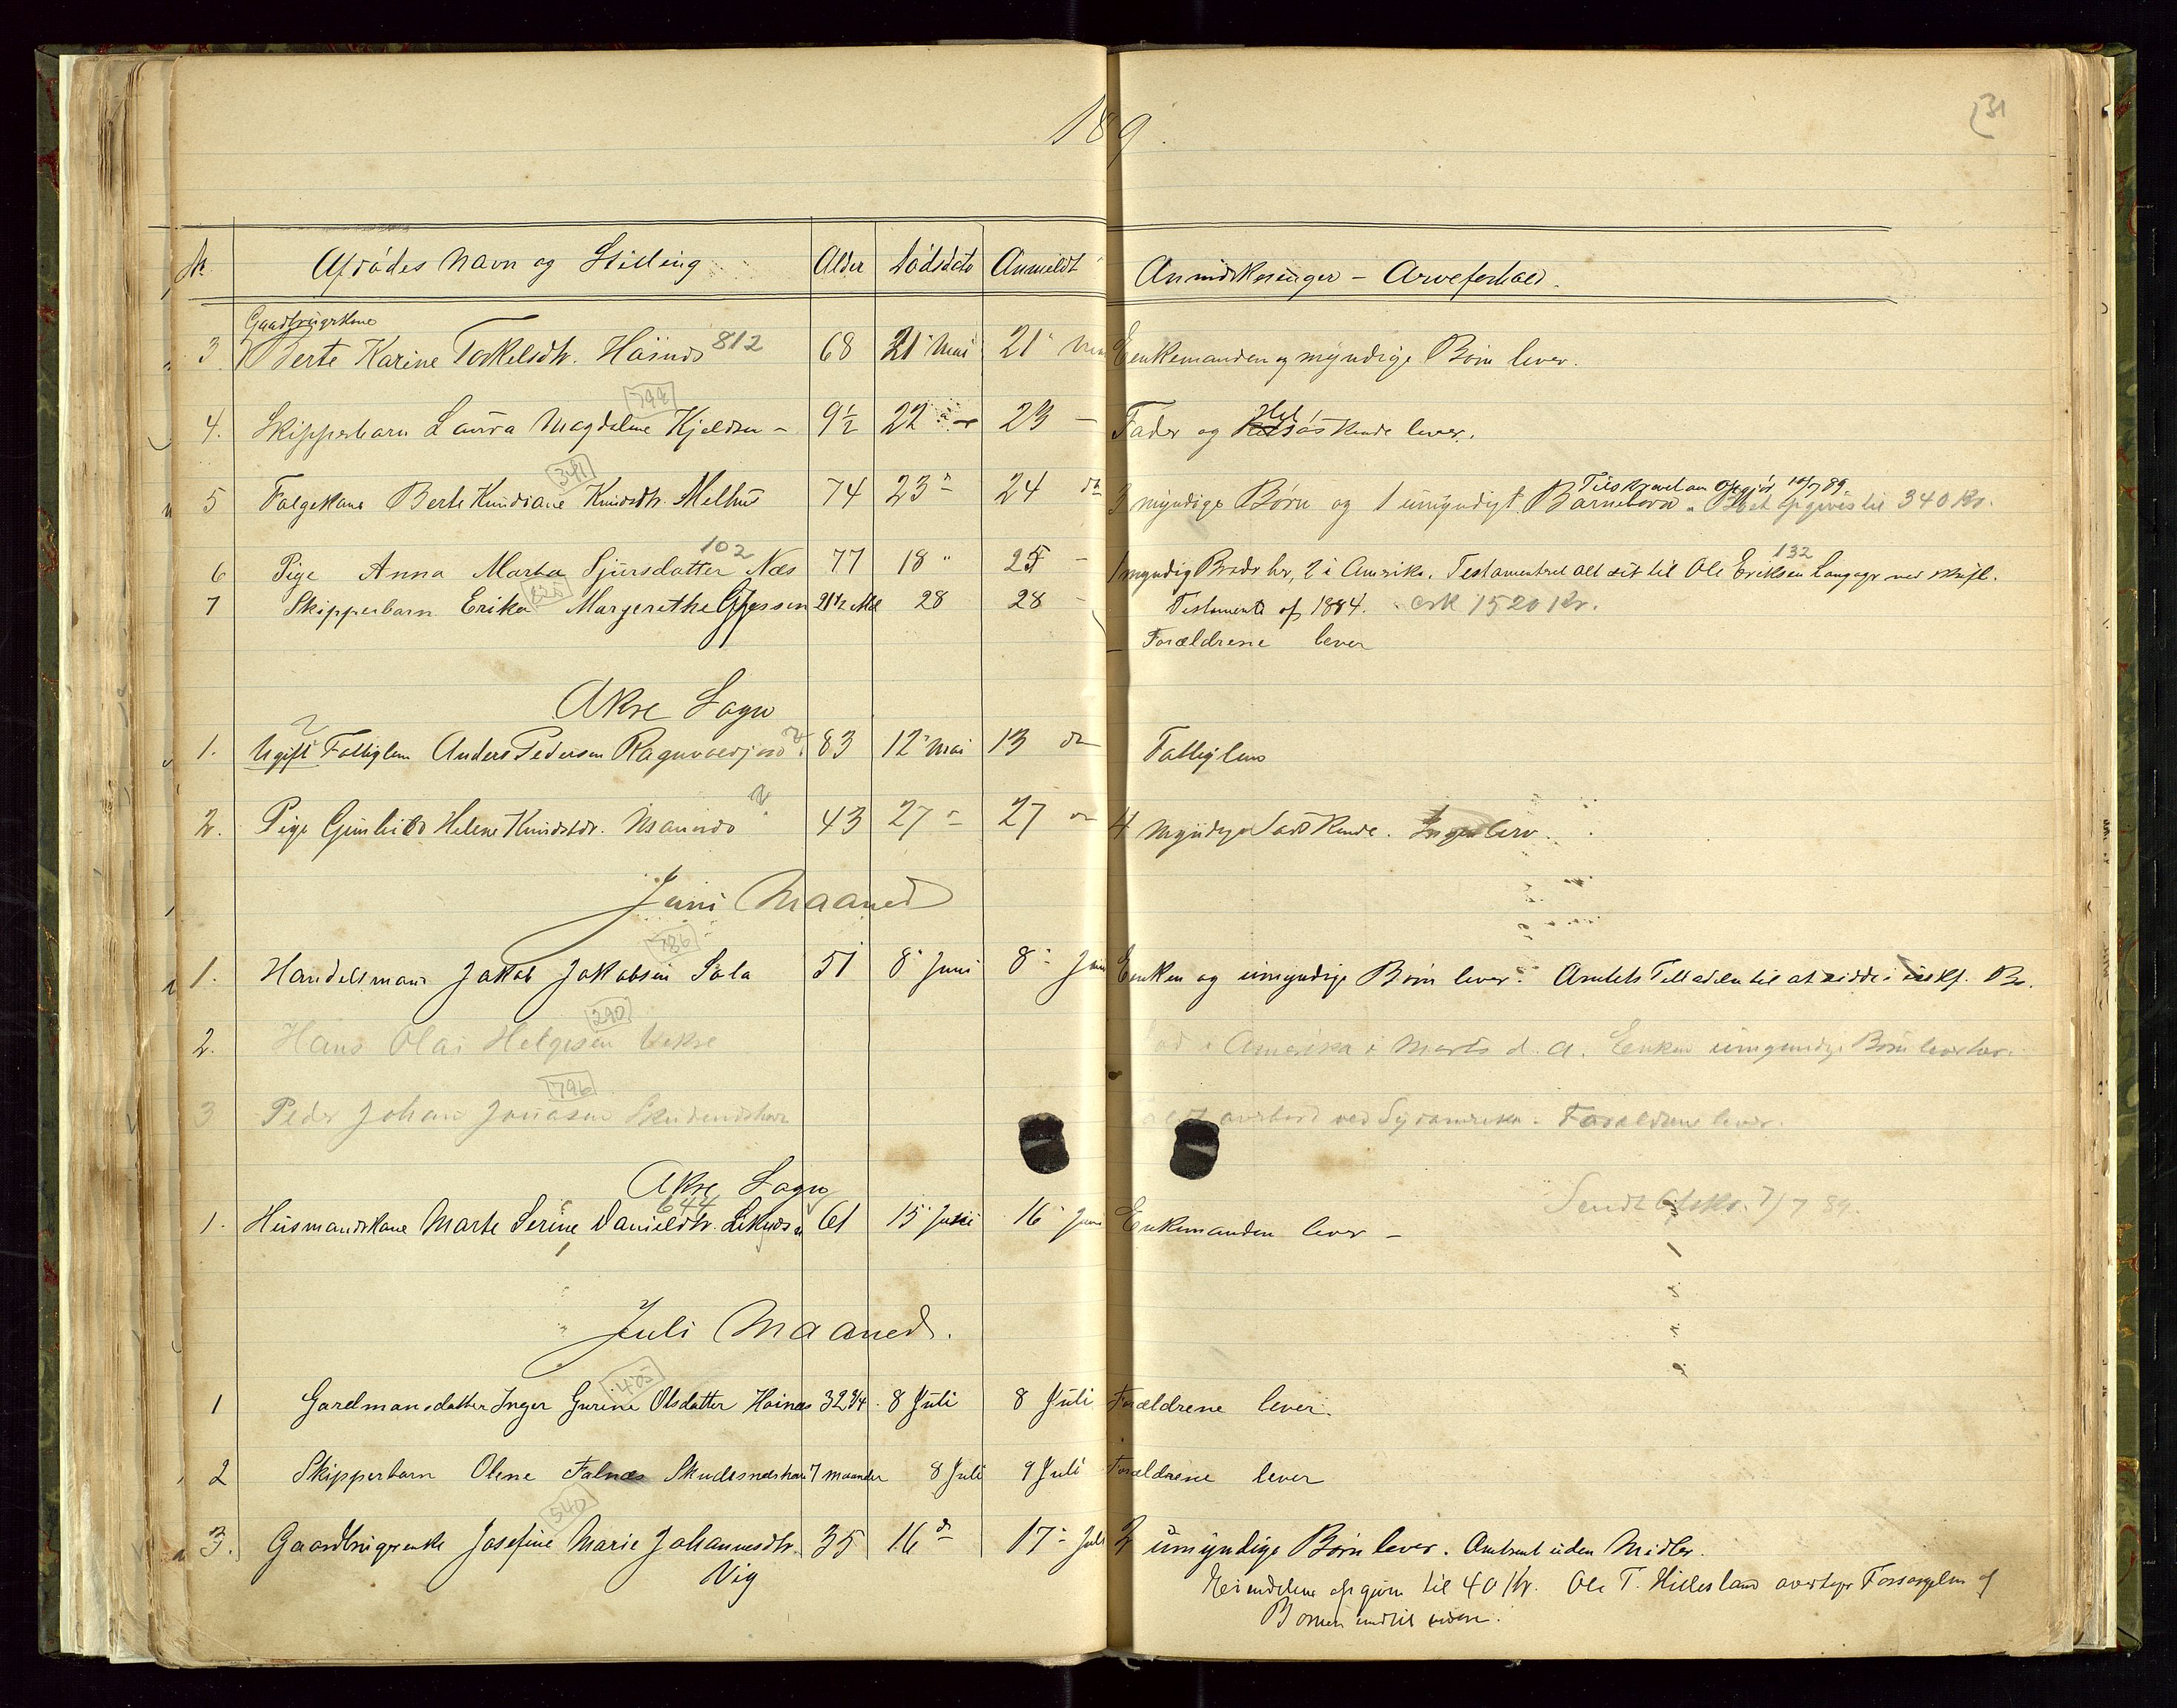 189.
31
№ Afdødes Navn og Stilling Alder Dødsdato Anmeldt Anmærkninger – Arveforhold.
Gaardbrugerkone
3 Berte Karine Torkelsdtr. Høinæs 812 68 21" Mai 21" Mai Enkemanden og myndige Børn lever.
799
4. Skipperbarn Laura Magdalene Kjeldsen – 9½ 22 23 – Fader og Helsøskende lever.
341
Tilskrevet om Opgjør 10/7 89.
5 Folgekone Berte Knudsdtr. Melhus 74 23 24 3 myndige Børn og 1 umyndigt Barnebarn. Boet opgives til 340 Kr.
102 132
6 Pige Anna Marta Sjursdatter Næs 77 18 " 25 – 1 myndig Broder her, 2 i Amerika. Testamenteret alt sit til Ole Eriksen Langager ved skriftl.
7 Skipperbarn Erika Margrethe 21½ Md 28 28 – Testamente af 1884. 1520 Kr.
Forældrene lever
Akre Sogn
1. Ugift Fattiglem Anders Pedersen 83 12" Mai 13 Fattiglem
2. Pige Gunhild Helene Knudsdtr. 43 27 27 4 myndige Søskende. Ingen
Juni Maaned
786
1. Handelsmand Jakob Jakobsen Sola 51 8" Juni 8" Juni Enken og umyndige Børn lever. Amtets Tilladelse til at sidde i uskf. Bo.
290
2. Hans Olai Helgesen Vikre i Amerika i Marts d. A. Enken umyndige Børn lever her.
796
3 Peder Johan Jonasen Skudeneshavn overbord ved Sydamerika. Forældrene lever.
Akre Sogn
644 Sendt 7/7 89.
1. Husmandskone Marte Serine Danieldtr. 61 15" Juni 16" Juni Enkemanden lever –
Juli Maaned.
405
1 Gardmansdatter Inger Gurine Olsdatter Hoinæs 32¾ 8 Juli 8 Juli Forældrene lever.
2 Skipperbarn Olene Falnæs Skudesneshavn 7 maaneder 8 Juli 9 Juli Forældrene lever
540
3. Gaardbrugerenke Josefine Marie Johannesdtr. 35 16 17" Juli 2 umyndige Børn lever. Omtrent uden Midler.
Vig Eiendelene opgivne til 40 Kr. Ole T. Hillesland overtager Forsørgelsen af
Børnene indtil videre.